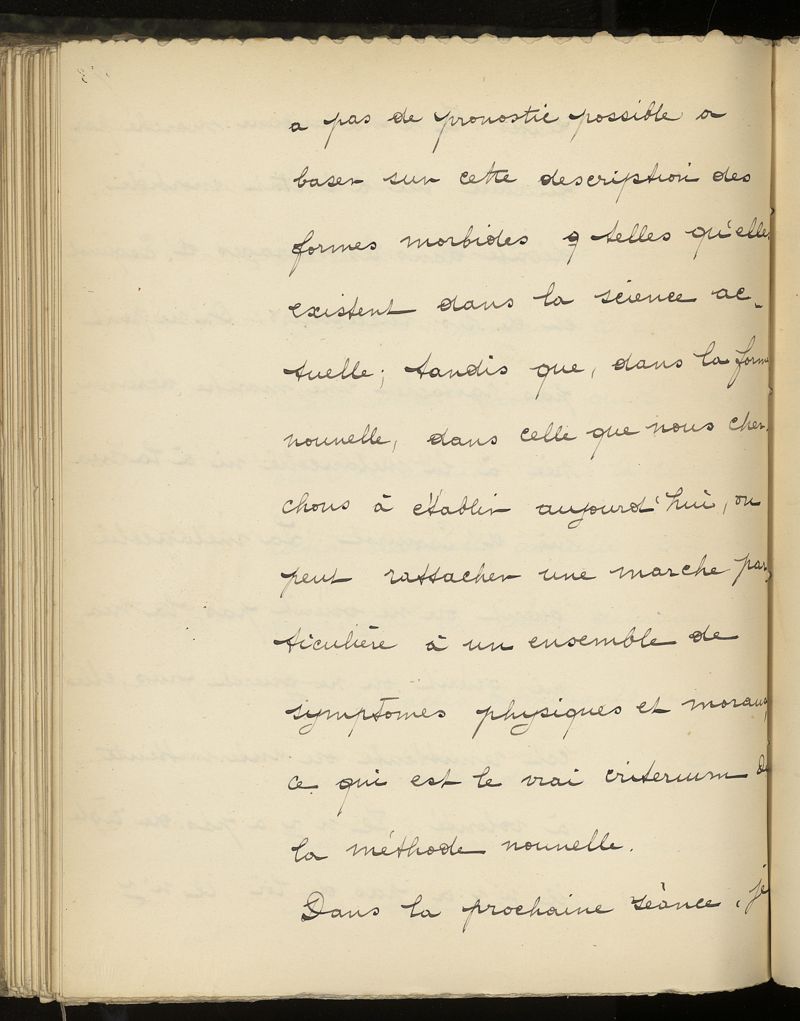 a pas de pronostic possible a
baser sur cette description des
formes morbides telles qu'elles
existent dans la science ac-
tuelle; tandis que, dans la forme
nouvelle, dans celle que nous cher-
chons à établir aujourd'hui, on
peut rattacher une marche par-
ticulière à un ensemble de
symptomes physiques et moraux
ce qui est le vrai criterium de
la méthode nouvelle.
Dans la prochaine séance, je